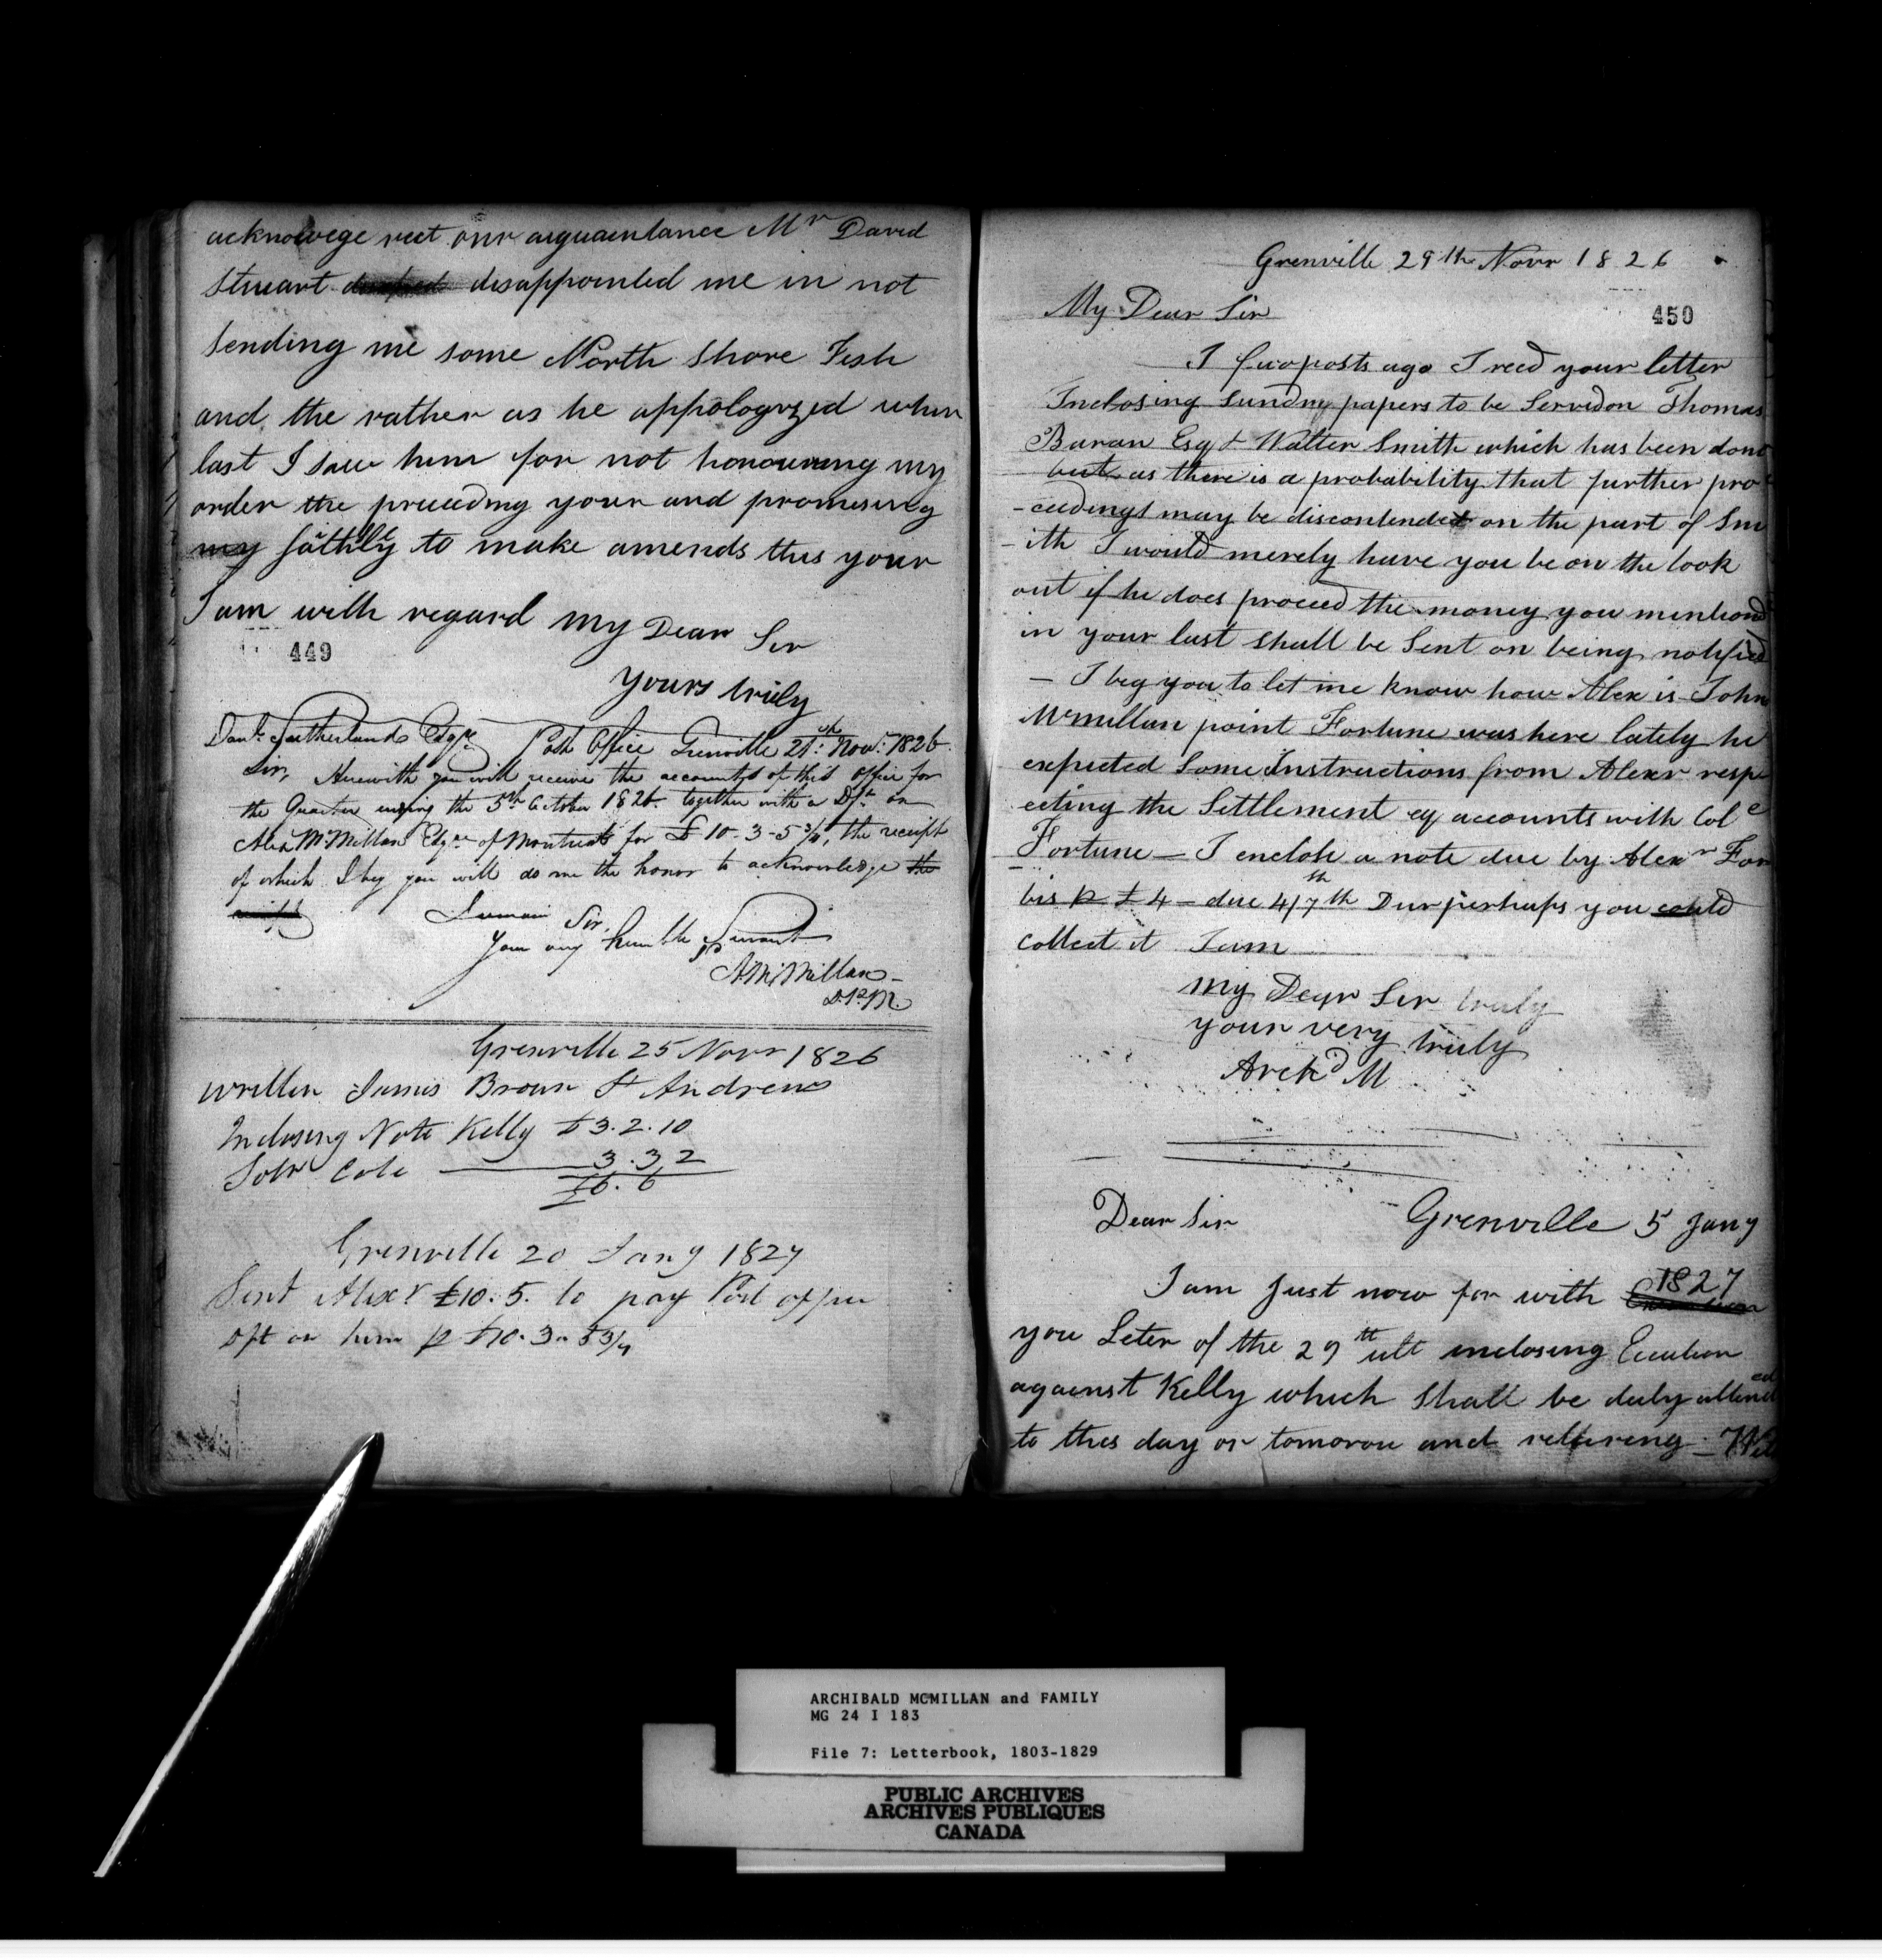 acknowege rect our aiquaintance Mr David
Stuart disappointed me in not
sending me some North Shore Fish
and the rather as he appologyzed when
last I saw him for not honouring my
order the preceeding year and promising
my faithly to make amends this your
I am with regard My Dear Sir
449
yours truly
Danl. Sutherland Esqre Post Office Grenville 21st Novr. 1826.
Sir, Herewith you will receive the accounts of this office for
the Quarter ending the 5th October 1826. together with a Dft. on
Alex McMillan Esqre of Montreal for £10-3-5 3/4, the receipt
of which I beg you will do me the honor to acknowledge the
receipt
I remain Sir,
Your very humble Servant
A. McMillan
D.P.M.
Grenville 25 Novr 1826
written James Brown St Andrews
Inclosing Note Kelly £3.2.10
Cole 3.3.2
£6.6
Grenville 20 Jany 1827
Sent Alexr £10.5. to pay Post office
Dft on him p £10.3.5 3/4
Grenville 29th Novr 1826
450
My Dear Sir
I few posts ago I recd your letter
Inclosing Sundry papers to be Servedon Thomas
Baran Esq & Walter Smith which has been done
but as there is a probability that further pro
-ceedings may be discontended on the part of Sm
-ith I would merely have you be on the look
out if he does proceed the money you mentiond
in your last shall be Sent on being notified
— I beg you to let me know how Alex is John
Mcmillan point Fortune was here lately he
expected Some Instructions from Alexr resp
ecting the Settlement of accounts with Col
Fortune — I enclose a note due by Alexr For
bis p £4 — due 4/7th Dur perhaps you could
collect it I am
my Dear Sir truly
your very truly
Archd M
Dear Sir Grenville 5 Jany
1827
I am Just now for with
you Leter of the 29th ult inclosing Execution
against Kelly which Shall be duly attended
to this day or tomorou and returing —
ARCHIBALD MCMILLAN and FAMILY
MG 24 I 183
File 7: Letterbook, 1803-1829
PUBLIC ARCHIVES
ARCHIVES PUBLIQUES
CANADA